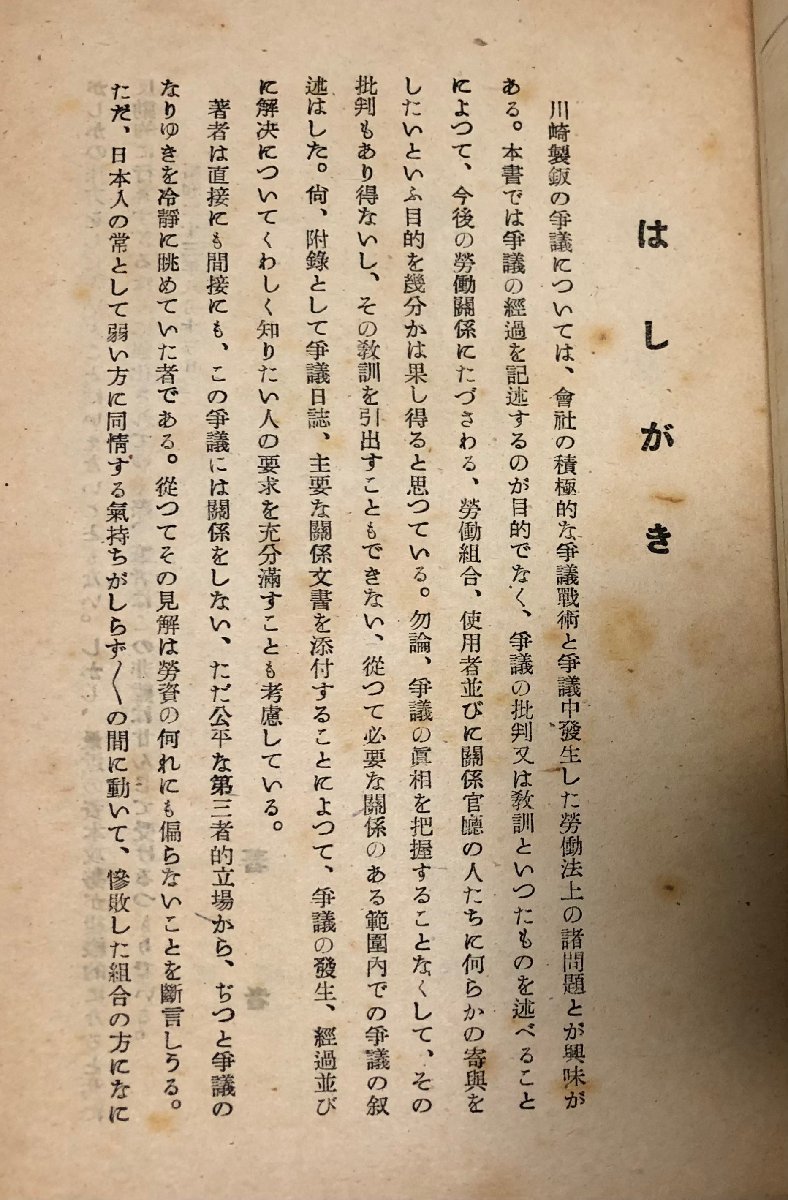 はしがき
川崎製鈑の爭議については、會社の積極的な爭議戰術と爭議中發生した勞働法上の諸問題とが興味が
ある。本書では爭議の經過を記述するのが目的でなく、爭議の批判又は敎訓といつたものを述べること
によつて、今後の勞働關係にたづさわる、勞働組合、使用者並びに關係官廳の人たちに何らかの寄與を
したいといふ目的を幾分かは果し得ると思つている。勿論、爭議の眞相を把握することなくして、その
批判もあり得ないし、その敎訓を引出すこともできない、從つて必要な關係のある範圍內での爭議の叙
述はした。尙、附錄として爭議日誌、主要な關係文書を添付することによつて、爭議の發生、經過並び
に解决についてくわしく知りたい人の要求を充分滿すことも考慮している。
著者は直接にも間接にも、この爭議には關係をしない、ただ公平な第三者的立場から、ぢつと爭議の
なりゆきを冷靜に眺めていた者である。從つてその見解は勞資の何れにも偏らないことを斷言しうる。
ただ、日本人の常として弱い方に同情する氣持ちがしらず〱の間に動いて、慘敗した組合の方になに